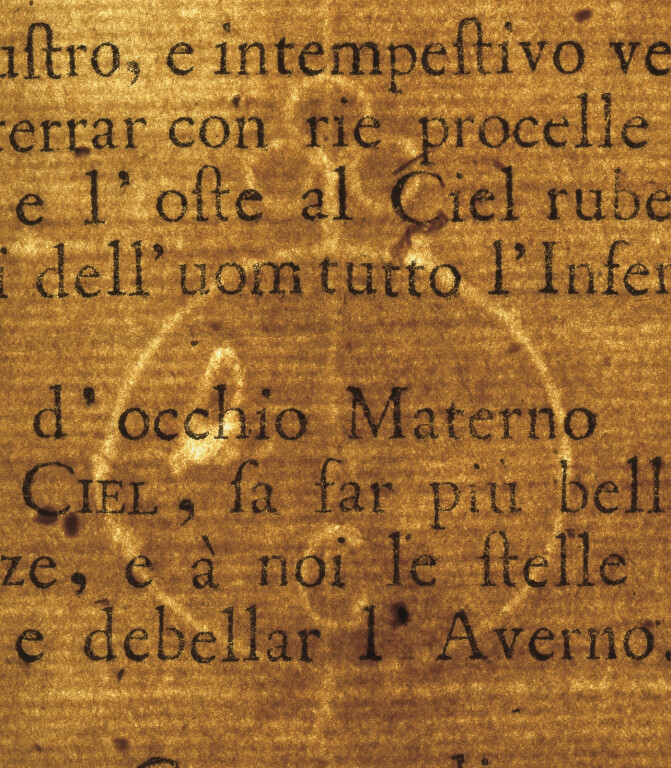 uſtro, e intempeſtivo ve
terrar con rie procelle
e l' oſte al Ciel rube
i dell'uom tutto l'Infer
d' occhio Materno
CIEL, ſa far più bell
ze, e à noi le ſtelle
e debellar l' Averno.